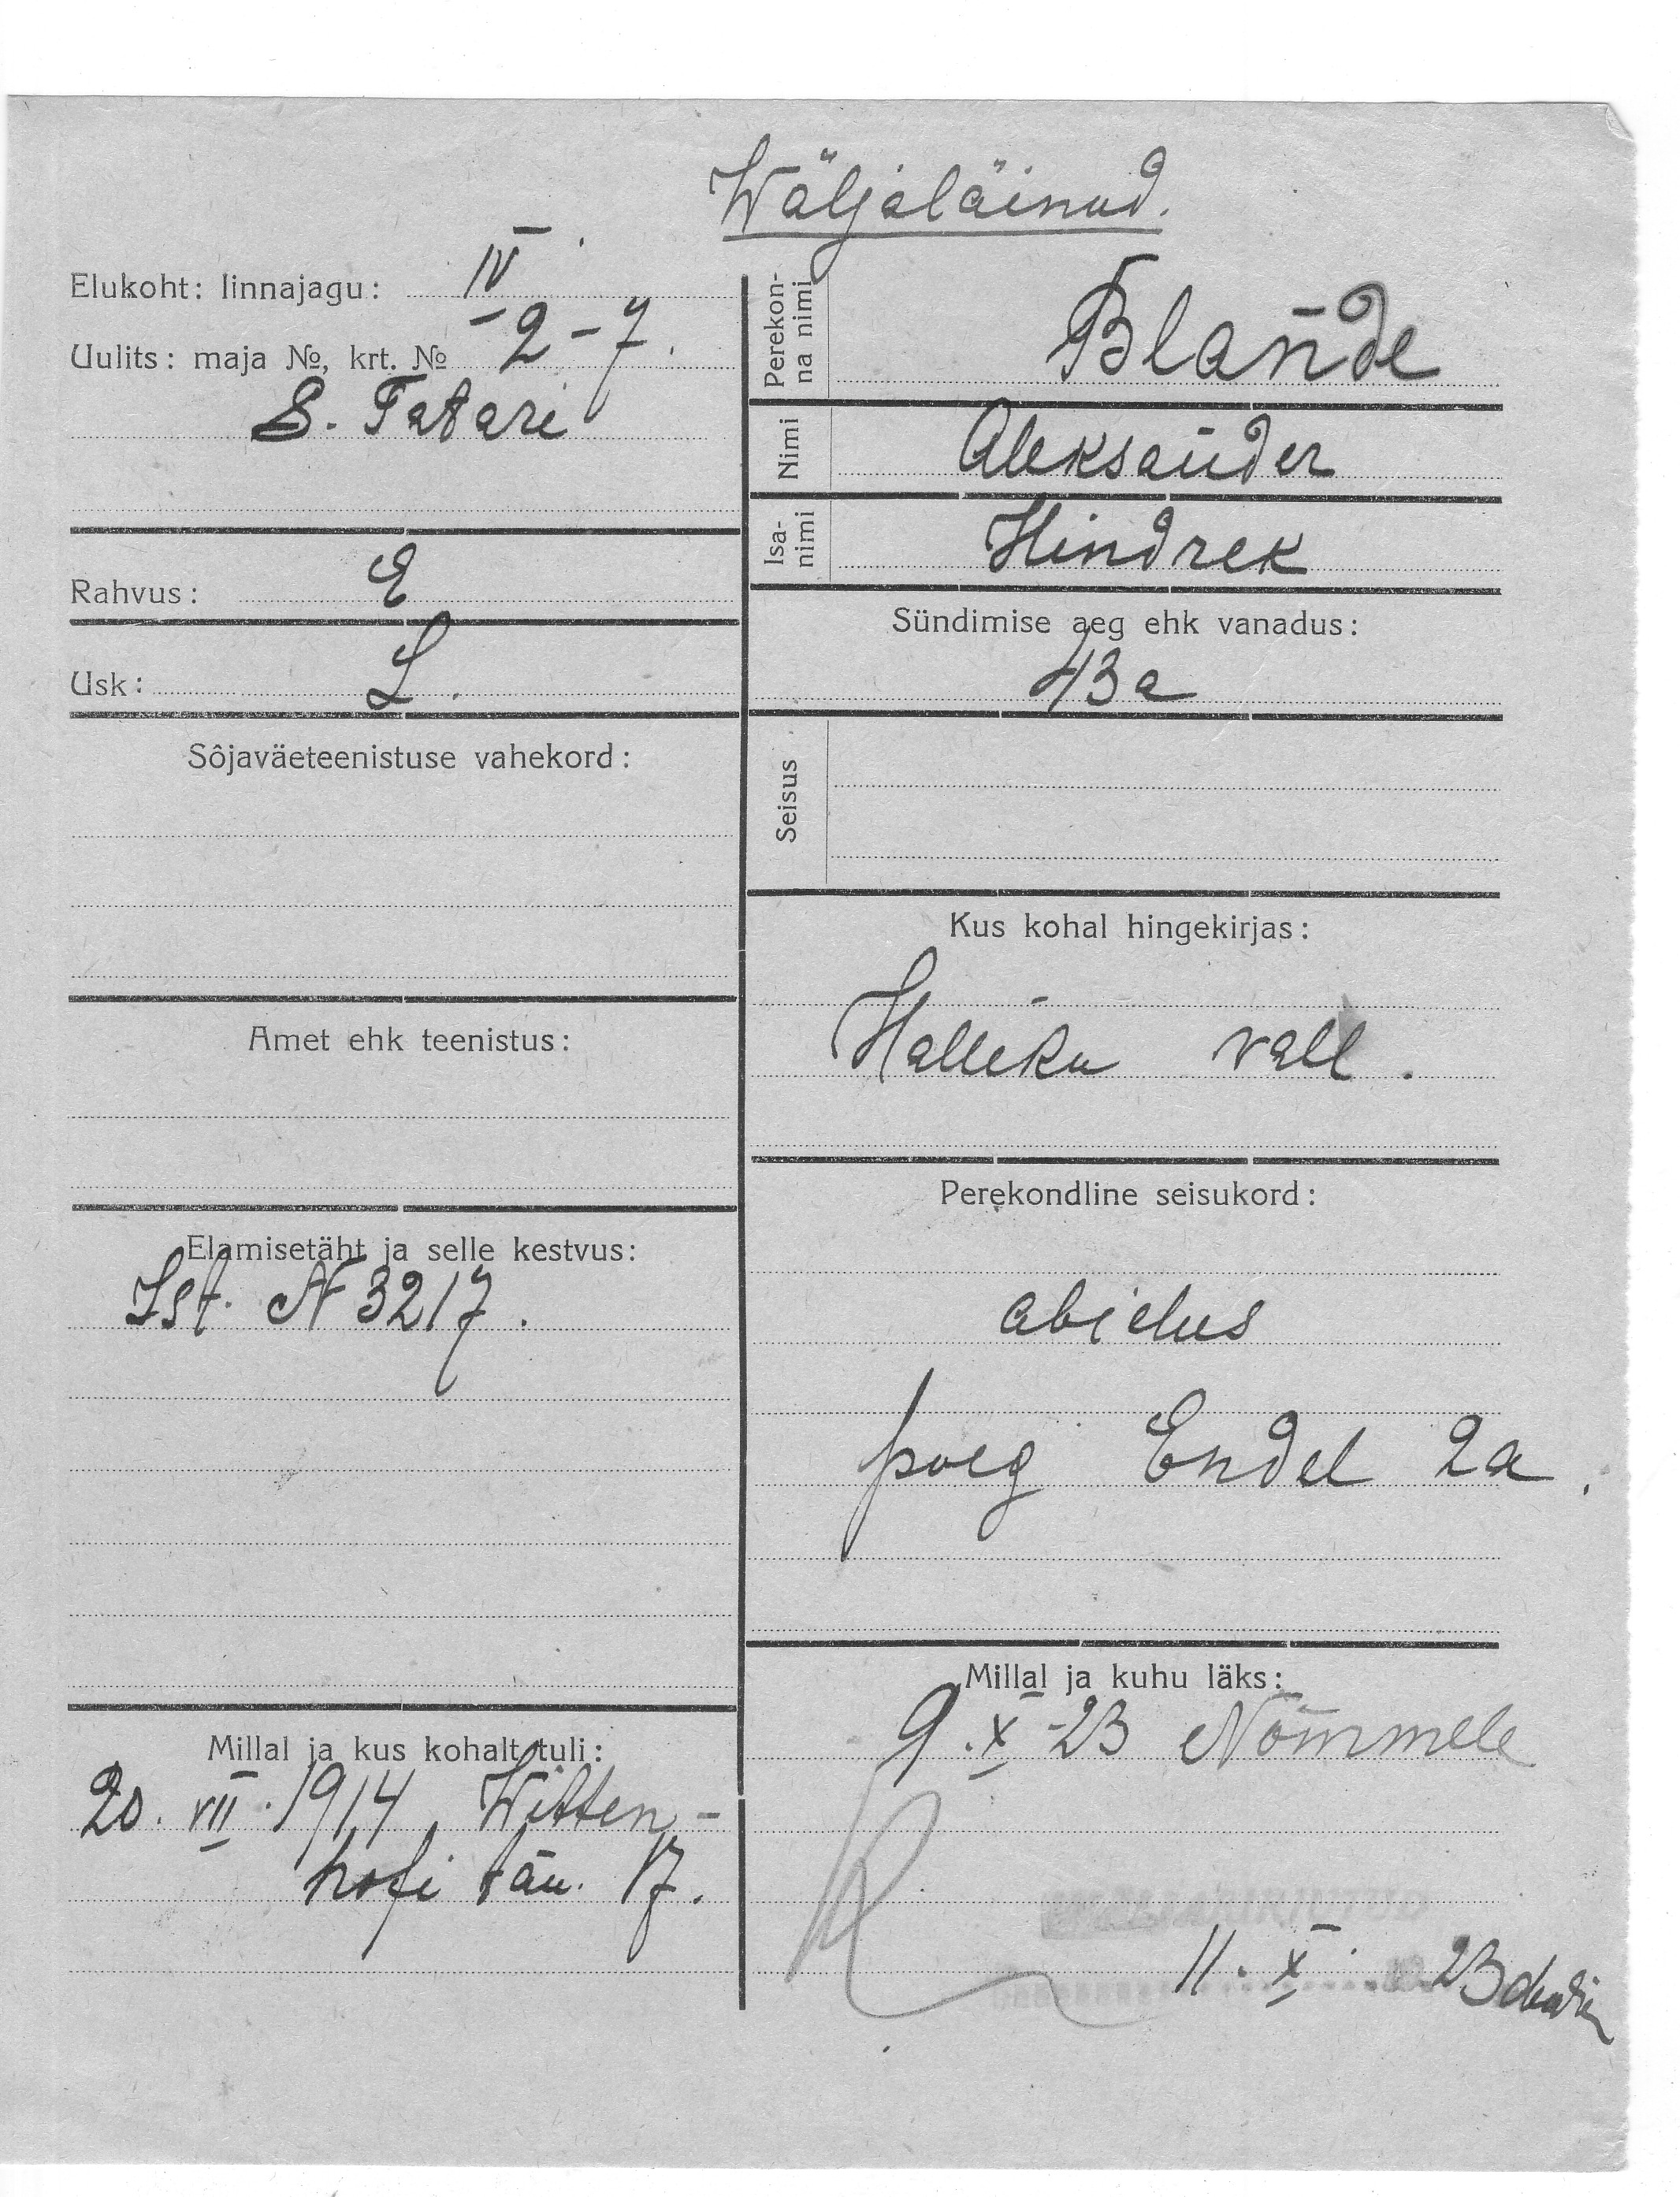 Wäljaläinud.
Elukoht: linnajagu: IV
Uulits: maja №, krt. № 2-7.
S. Tatari
Rahvus: E
Usk: L.
Sõjaväeteenistuse vahekord:
Amet ehk teenistus:
Elamisetäht ja selle kestvus:
Ist. N 3217.
Millal ja kus kohalt tuli:
20. VII. 1914 Witten-
hofi tän. 17.
Perekon-
na nimi
Blande
Nimi Aleksander
Isa-
nimi
Hindrek
Sündimise aeg ehk vanadus:
43 a
Seisus
Kus kohal hingekirjas:
Halliku vall.
Perekondline seisukord:
abielus
poeg Endel 2a.
Millal ja kuhu läks:
9. X -23 Nõmmele
11. X. 23